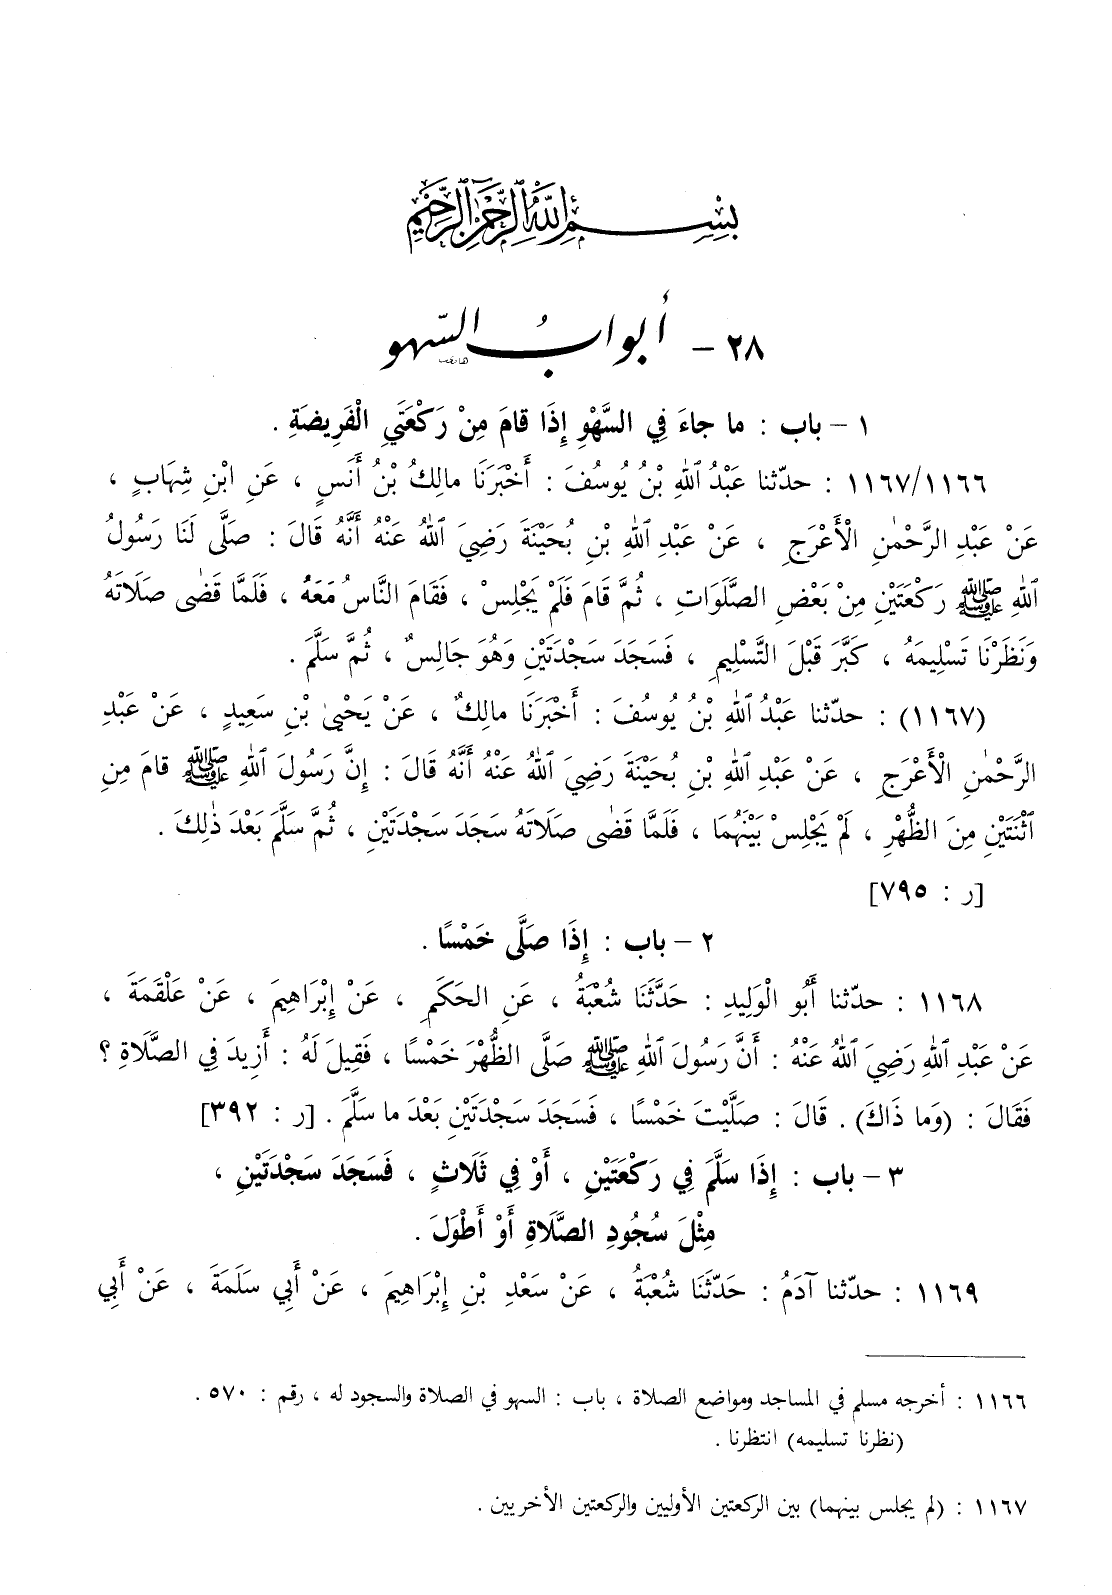 بِسْمِ ٱللَّهِ ٱلرَّحْمَٰنِ ٱلرَّحِيمِ
٢٨ – أبوابُ السّهو
١ – باب : ما جاءَ فِي السَّهْوِ إِذَا قامَ مِنْ رَكْعَتَيِ الْفَرِيضَةِ .
١١٦٧/١١٦٦ : حدّثنا عَبْدُ ٱللهِ بْنُ يُوسُفَ : أَخْبَرَنَا مالِكُ بْنُ أَنَسٍ ، عَنِ ابْنِ شِهَابٍ ،
عَنْ عَبْدِ الرَّحْمٰنِ الْأَعْرَجِ ، عَنْ عَبْدِ ٱللهِ بْنِ بُحَيْنَةَ رَضِيَ ٱللهُ عَنْهُ أَنَّهُ قَالَ : صَلَّى لَنَا رَسُولُ
ٱللهِ ﷺ رَكْعَتَيْنِ مِنْ بَعْضِ الصَّلَوَاتِ ، ثُمَّ قامَ فَلَمْ يَجْلِسْ ، فَقَامَ النَّاسُ مَعَهُ ، فَلَمَّا قَضٰى صَلَاتَهُ
وَنَظَرْنَا تَسْلِيمَهُ ، كَبَّرَ قَبْلَ التَّسْلِيمِ ، فَسَجَدَ سَجْدَتَيْنِ وَهُوَ جَالِسٌ ، ثُمَّ سَلَّمَ .
(١١٦٧) : حدّثنا عَبْدُ ٱللهِ بْنُ يُوسُفَ : أَخْبَرَنَا مالِكٌ ، عَنْ يَحْيىٰ بْنِ سَعِيدٍ ، عَنْ عَبْدِ
الرَّحْمٰنِ الْأَعْرَجِ ، عَنْ عَبْدِ ٱللهِ بْنِ بُحَيْنَةَ رَضِيَ ٱللهُ عَنْهُ أَنَّهُ قَالَ : إِنَّ رَسُولَ ٱللهِ ﷺ قامَ مِنِ
ٱثْنَتَيْنِ مِنَ الظُّهْرِ ، لَمْ يَجْلِسْ بَيْنَهُمَا ، فَلَمَّا قَضٰى صَلَاتَهُ سَجَدَ سَجْدَتَيْنِ ، ثُمَّ سَلَّمَ بَعْدَ ذٰلِكَ .
[ر : ٧٩٥]
٢ – باب : إِذَا صَلَّى خَمْسًا .
١١٦٨ : حدّثنا أَبُو الْوَلِيدِ : حَدَّثَنَا شُعْبَةُ ، عَنِ الحَكَمِ ، عَنْ إِبْرَاهِيمَ ، عَنْ عَلْقَمَةَ ،
عَنْ عَبْدِ ٱللهِ رَضِيَ ٱللهُ عَنْهُ : أَنَّ رَسُولَ ٱللهِ ﷺ صَلَّى الظُّهْرَ خَمْسًا ، فَقِيلَ لَهُ : أَزِيدَ فِي الصَّلَاةِ ؟
فَقَالَ : (وَما ذَاكَ) . قَالَ : صَلَّيْتَ خَمْسًا ، فَسَجَدَ سَجْدَتَيْنِ بَعْدَ ما سَلَّمَ . [ر : ٣٩٢]
٣ – باب : إِذَا سَلَّمَ فِي رَكْعَتَيْنِ ، أَوْ فِي ثَلَاثٍ ، فَسَجَدَ سَجْدَتَيْنِ ،
مِثْلَ سُجُودِ الصَّلَاةِ أَوْ أَطْوَلَ .
١١٦٩ : حدّثنا آدَمُ : حَدَّثَنَا شُعْبَةُ ، عَنْ سَعْدِ بْنِ إِبْرَاهِيمَ ، عَنْ أَبِي سَلَمَةَ ، عَنْ أَبِي
١١٦٦ : أخرجه مسلم في المساجد ومواضع الصلاة ، باب : السهو في الصلاة والسجود له ، رقم : ٥٧٠ .
(نظرنا تسليمه) انتظرنا .
١١٦٧ : (لم يجلس بينهما) بين الركعتين الأوليين والركعتين الأخريين .